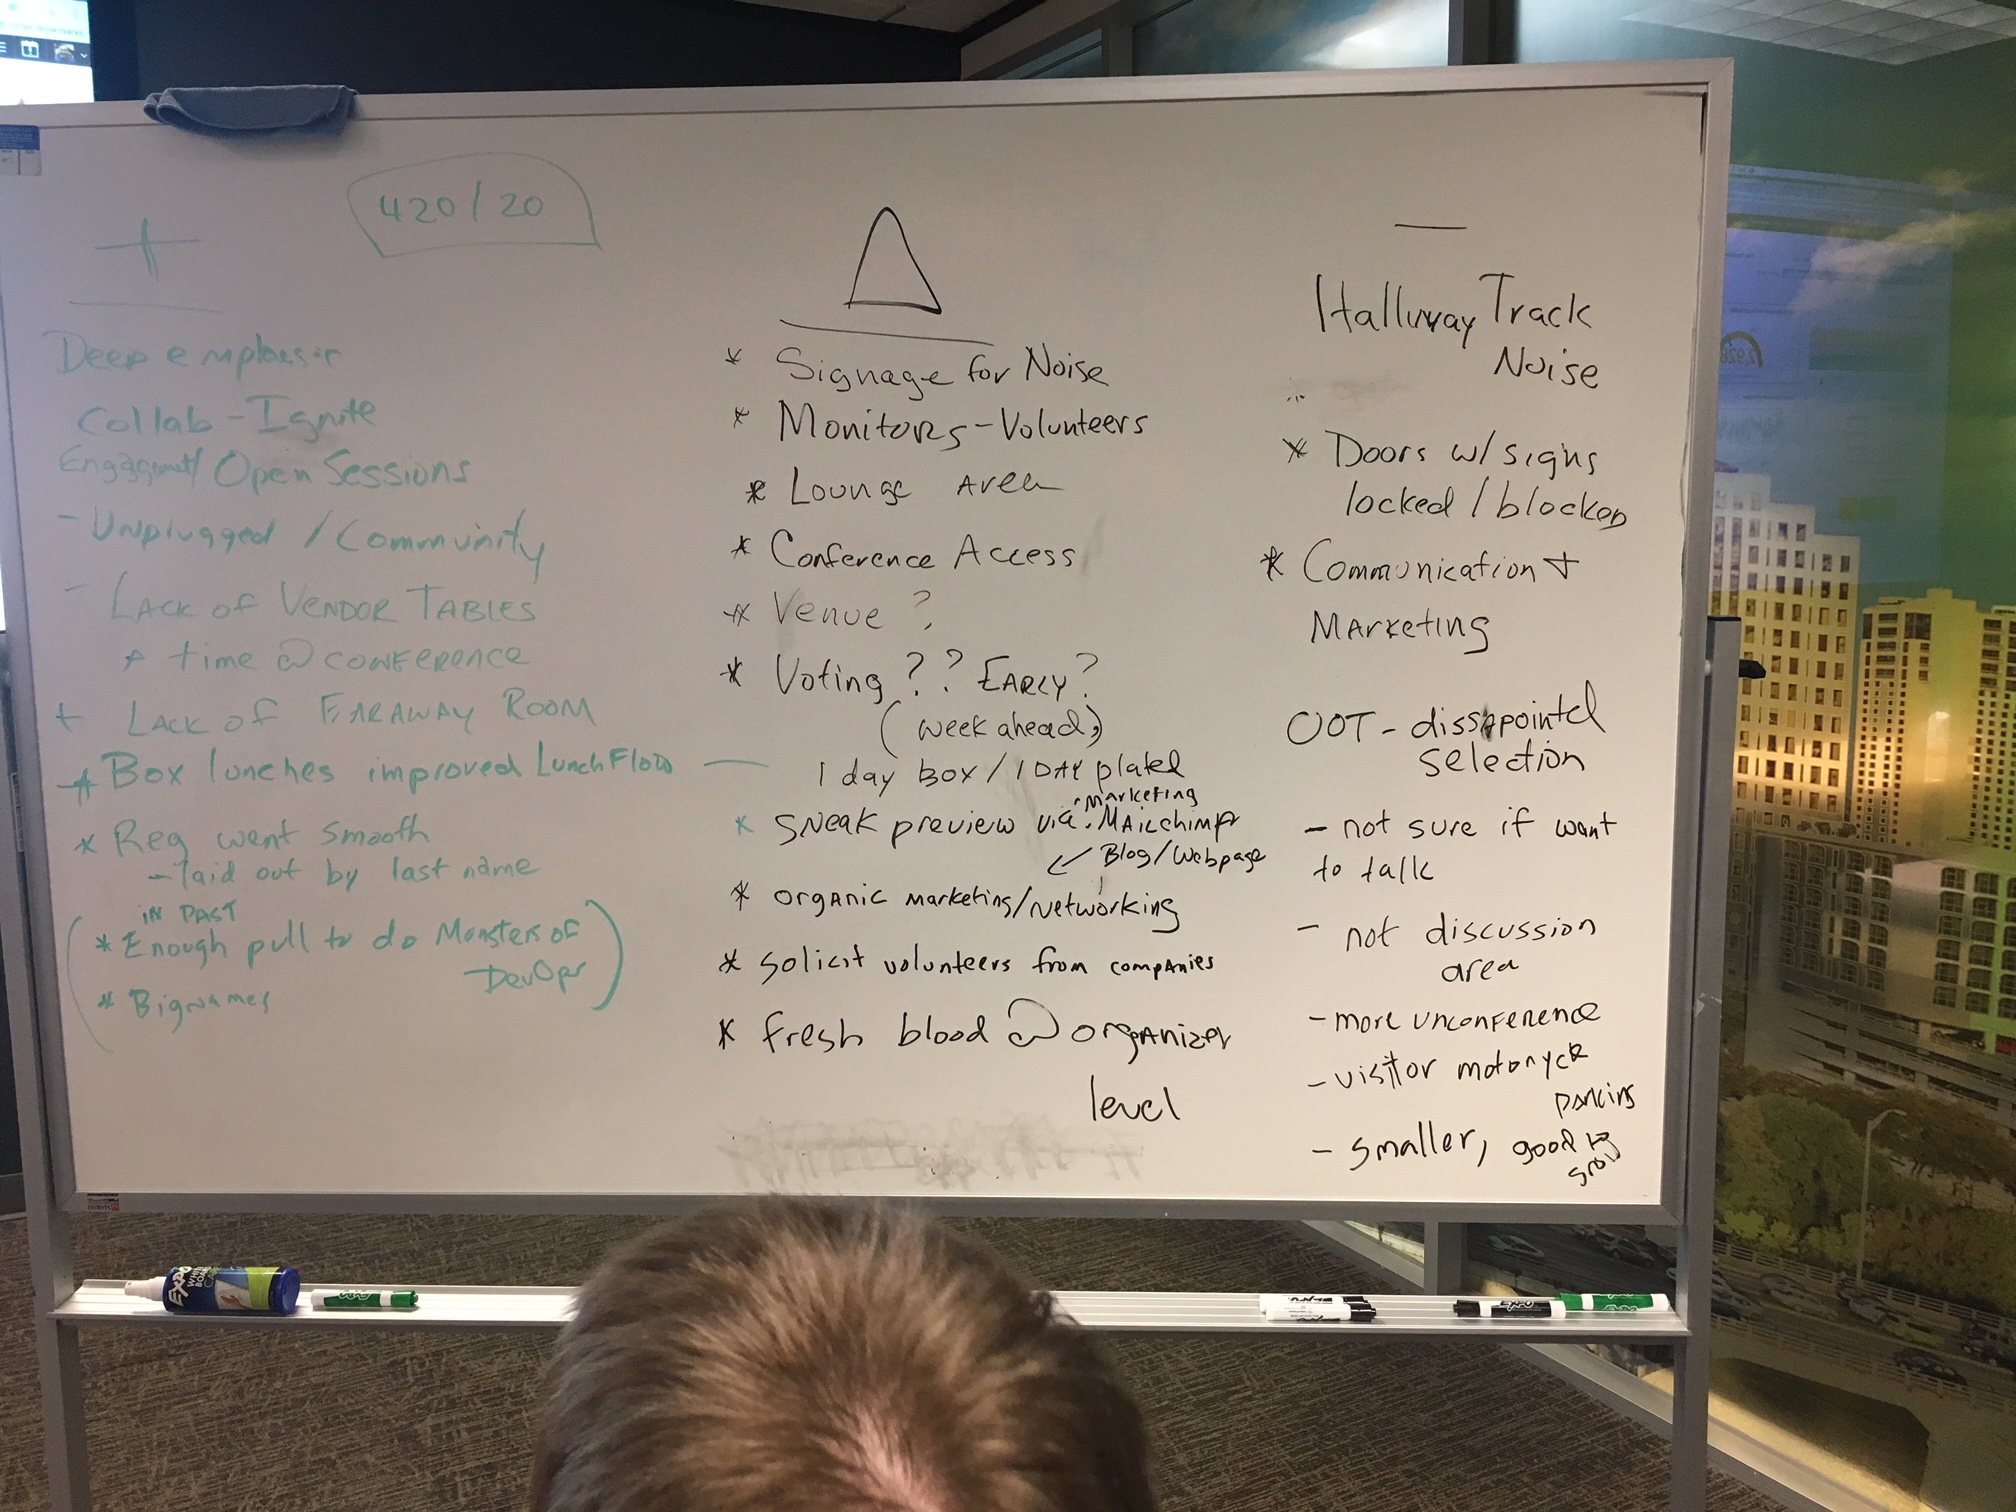 420/20
+
Deep emphasis on
Collab - Ignite
Engagement/ Open Sessions
- Unplugged / Community
- LACK of VENDOR TABLES
+ time @ CONFERENCE
+ LACK of FARAWAY ROOM
* Box lunches improved Lunch Flow
* Reg went smooth
- laid out by last name
IN PAST
(* Enough pull to do Monsters of
DevOps)
* Bignames
Δ
* Signage for Noise
* Monitors - Volunteers
* Lounge Area
* Conference Access
* Venue?
* Voting?? EARLY?
(week ahead?)
— 1 day BOX / 1 DAY plated
* SNEAK preview via • Marketing
• MAilchimp
Blog/Webpage
* organic marketing/Networking
* solicit volunteers from companies
* fresh blood @ organizer
level
—
Hallway Track
Noise
* Doors w/ signs
locked / blocked
* Communication +
Marketing
OOT - dissapointed
selection
- not sure if want
to talk
- not discussion
area
- more UNCONFERENCE
- visitor
parking
- smaller, good to
EXPO
WHITE
BOARD
EXPO